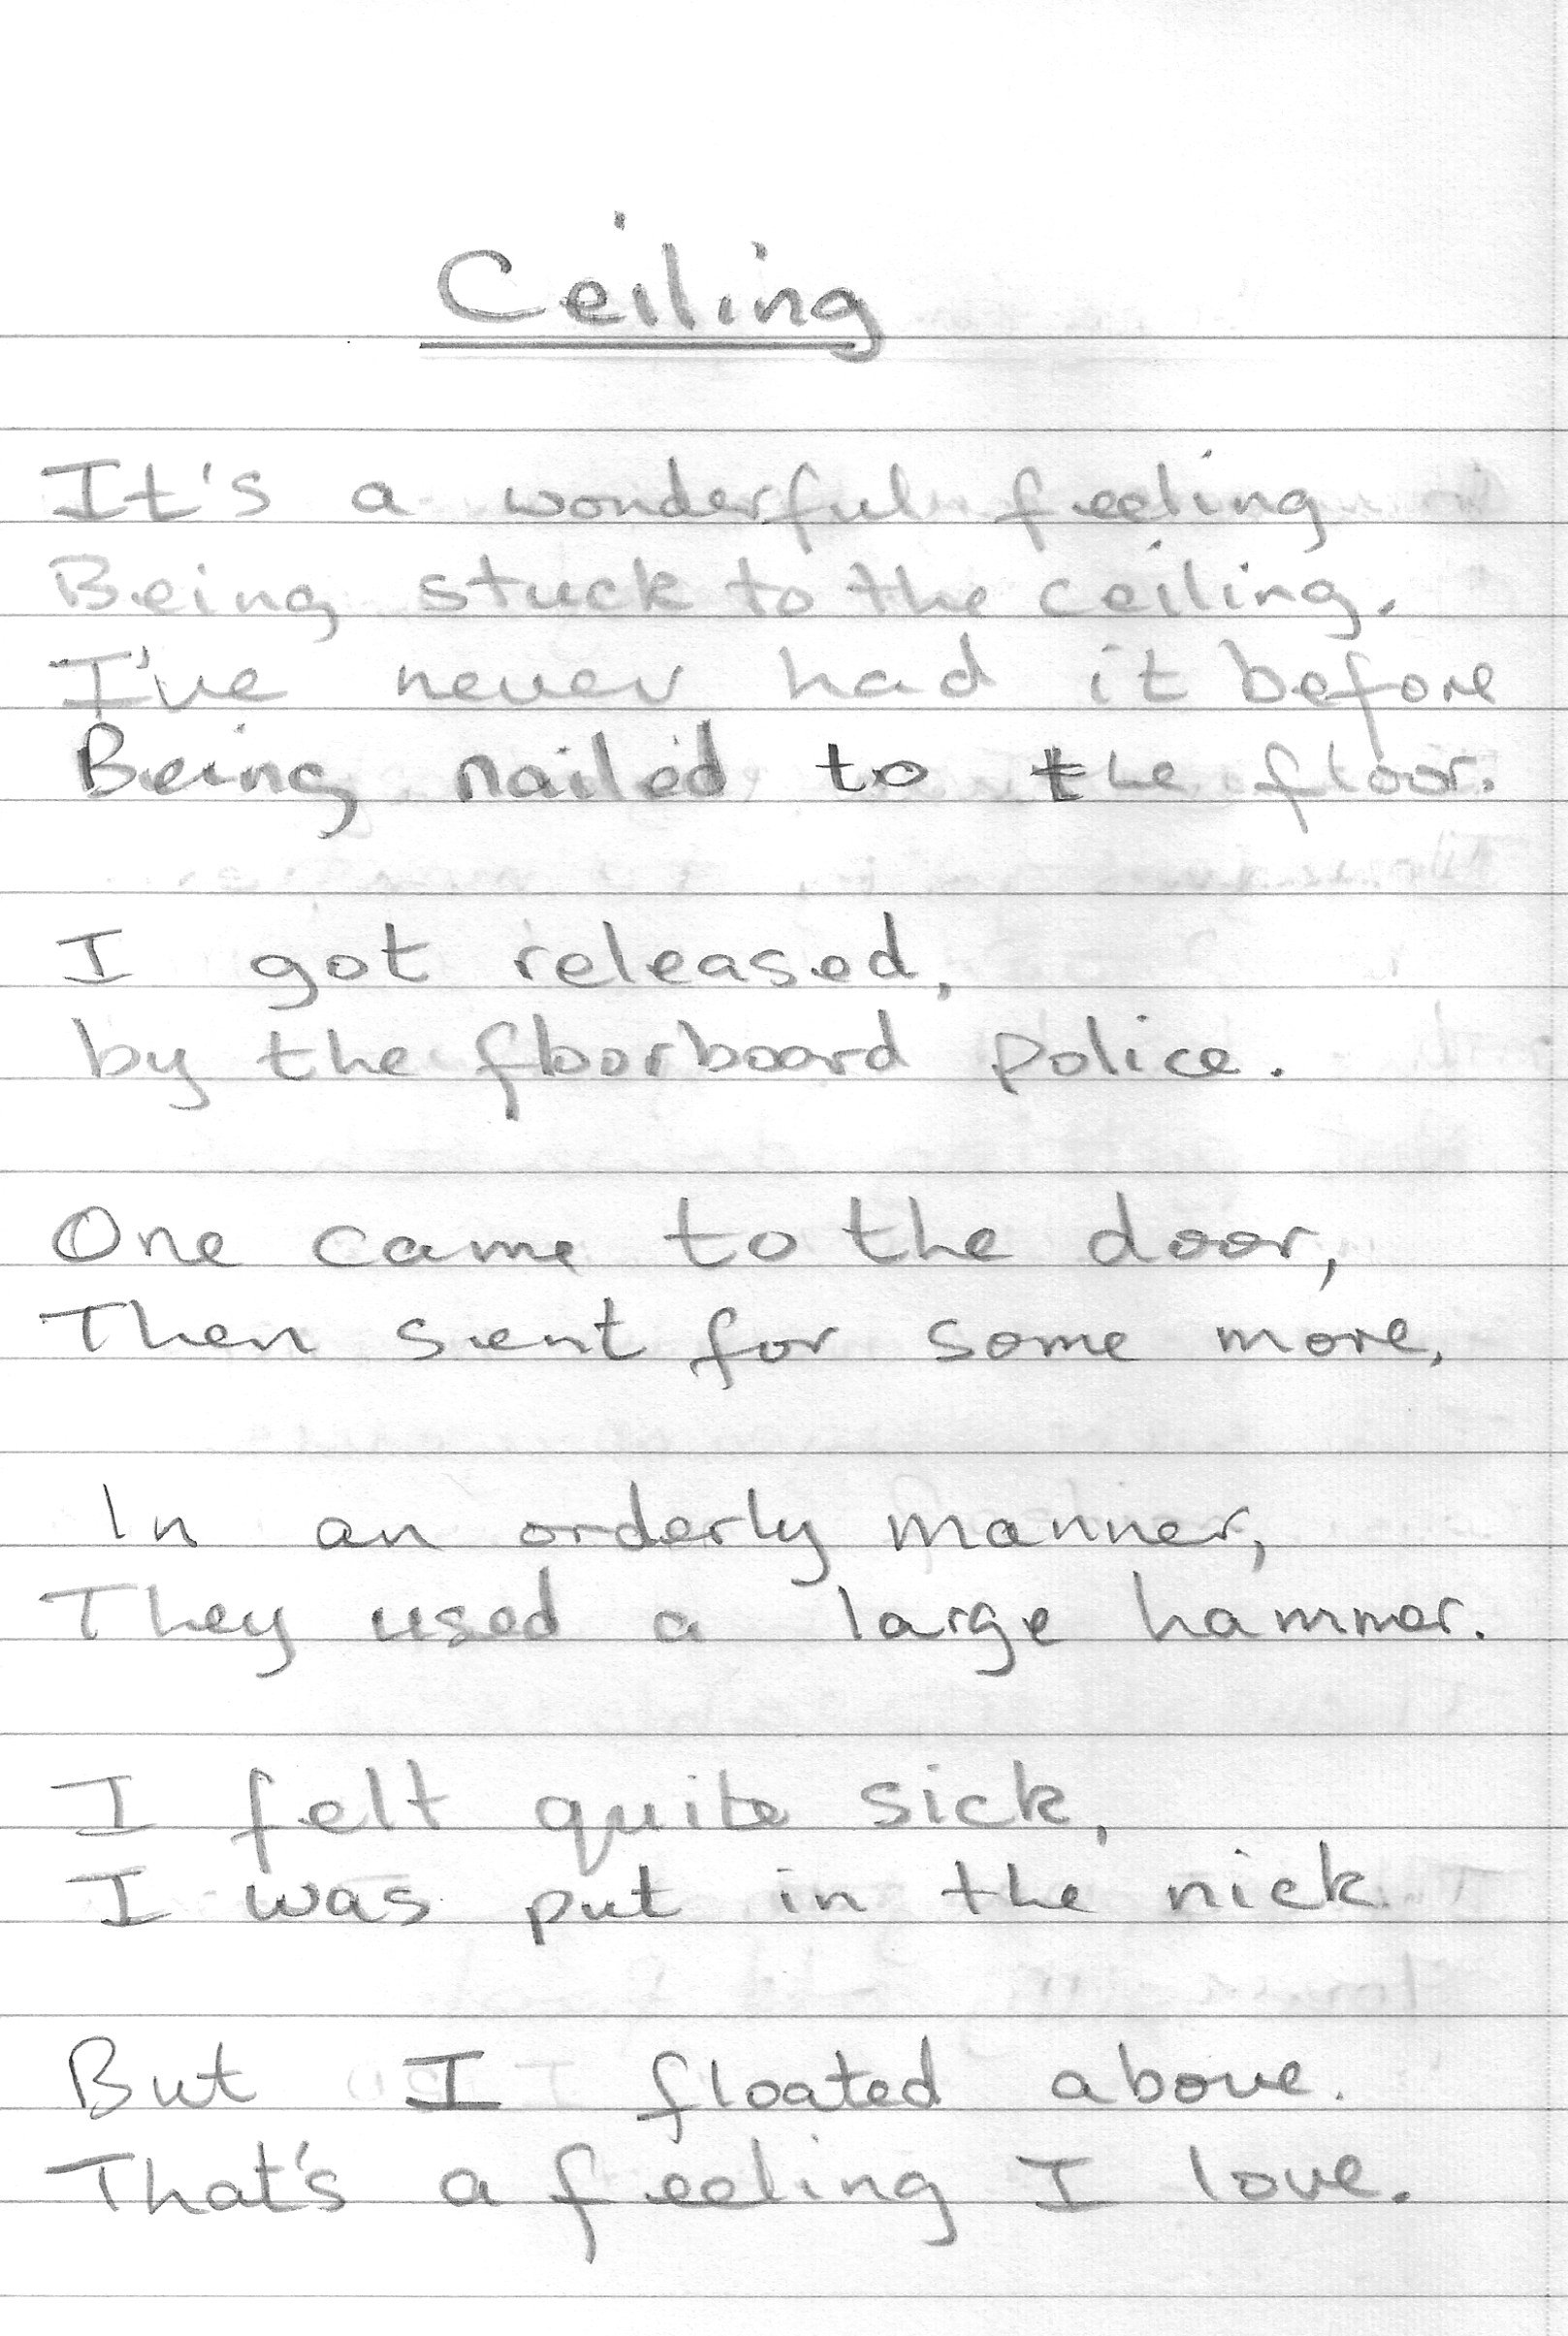 Ceiling
It's a wonderful feeling
Being stuck to the ceiling.
I've never had it before
Being nailed to the floor.
I got released,
by the floorboard police.
One came to the door,
Then sent for some more.
In an orderly manner,
They used a large hammer.
I felt quite sick,
I was put in the nick
But I floated above.
That's a feeling I love.